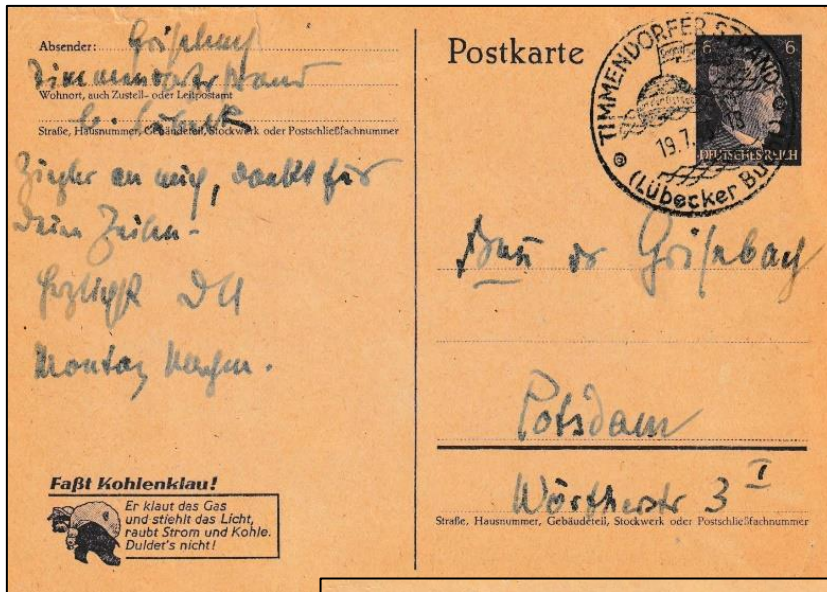 Absender: Grisebach
Timmendorferstrand
Wohnort, auch Zustell- oder Leitpostamt
b. Lübeck
Straße, Hausnummer, Gebäudeteil, Stockwerk oder Postschließfachnummer
an mich, dankt für
Deine Zeilen-
Montag
Faßt Kohlenklau!
Er klaut das Gas
und stiehlt das Licht,
raubt Strom und Kohle.
Duldet's nicht!
Postkarte
6 6
DEUTSCHES REICH
TIMMENDORFER STRAND
19.7.
(Lübecker
Grisebach
Potsdam
Wörtherstr 3 I
Straße, Hausnummer, Gebäudeteil, Stockwerk oder Postschließfachnummer